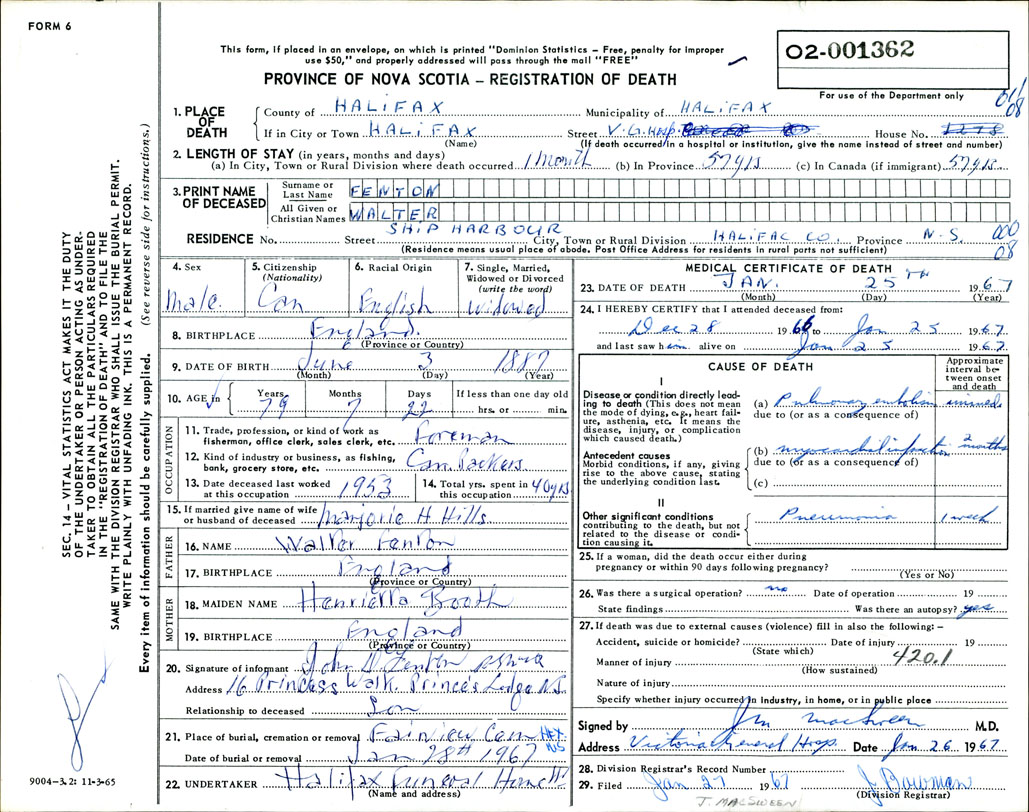 FORM 6
This form, if placed in an envelope, on which is printed "Dominion Statistics – Free, penalty for improper
use $50," and properly addressed will pass through the mail "FREE"
PROVINCE OF NOVA SCOTIA – REGISTRATION OF DEATH
02-001362
For use of the Department only
1. PLACE OF DEATH
County of HALIFAX Municipality of HALIFAX
If in City or Town HALIFAX Street V.G. Hosp. House No.
(Name) (If death occurred in a hospital or institution, give the name instead of street and number)
2. LENGTH OF STAY (in years, months and days)
(a) In City, Town or Rural Division where death occurred 1 Month (b) In Province 57 yrs (c) In Canada (if immigrant) 57 yrs.
3. PRINT NAME OF DECEASED
Surname or Last Name FENTON
All Given or Christian Names WALTER
RESIDENCE No. Street SHIP HARBOUR City, Town or Rural Division HALIFAX CO. Province N.S.
(Residence means usual place of abode. Post Office Address for residents in rural parts not sufficient)
000
08
4. Sex Male
5. Citizenship (Nationality) Can
6. Racial Origin English
7. Single, Married, Widowed or Divorced (write the word) Widowed
8. BIRTHPLACE England.
(Province or Country)
9. DATE OF BIRTH June 3 1887
(Month) (Day) (Year)
10. AGE in Years 79 Months 7 Days 22 If less than one day old hrs. or min.
OCCUPATION
11. Trade, profession, or kind of work as fisherman, office clerk, sales clerk, etc. Foreman
12. Kind of industry or business, as fishing, bank, grocery store, etc. Can Packers
13. Date deceased last worked at this occupation 1953
14. Total yrs. spent in this occupation 40 yrs
15. If married give name of wife or husband of deceased Marjorie H Hills
FATHER
16. NAME Walter Fenton
17. BIRTHPLACE England
(Province or Country)
MOTHER
18. MAIDEN NAME Henrietta Booth
19. BIRTHPLACE England
(Province or Country)
20. Signature of informant John D Fenton
Address 16 Princess Walk. Prince's Lodge N.S.
Relationship to deceased Son
21. Place of burial, cremation or removal Fairview Cem HFX NS
Date of burial or removal Jan 28th 1967
22. UNDERTAKER Halifax Funeral Home
(Name and address)
MEDICAL CERTIFICATE OF DEATH
23. DATE OF DEATH JAN. 25TH 1967
(Month) (Day) (Year)
24. I HEREBY CERTIFY that I attended deceased from:
Dec 28 1966 to Jan 25 1967.
and last saw him alive on Jan 25 1967.
CAUSE OF DEATH
Approximate interval between onset and death
I
Disease or condition directly leading to death (This does not mean the mode of dying, e.g., heart failure, asthenia, etc. It means the disease, injury, or complication which caused death.)
(a) Pulmonary embolism
due to (or as a consequence of)
Antecedent causes
Morbid conditions, if any, giving rise to the above cause, stating the underlying condition last.
(b) myocardial infarction 2 months
due to (or as a consequence of)
(c)
II
Other significant conditions contributing to the death, but not related to the disease or condition causing it.
Pneumonia 1 week
25. If a woman, did the death occur either during pregnancy or within 90 days following pregnancy?
(Yes or No)
26. Was there a surgical operation? no Date of operation 19
State findings Was there an autopsy? yes
27. If death was due to external causes (violence) fill in also the following:–
Accident, suicide or homicide? Date of injury 19
(State which)
420.1
Manner of injury
(How sustained)
Nature of injury
Specify whether injury occurred in industry, in home, or in public place
Signed by J M MacSween M.D.
Address Victoria General Hosp. Date Jan 26 1967.
28. Division Registrar's Record Number
29. Filed Jan 27 1967 J. Bowman
(Division Registrar)
J. MACSWEEN
SEC. 14 – VITAL STATISTICS ACT MAKES IT THE DUTY
OF THE UNDERTAKER OR PERSON ACTING AS UNDER-
TAKER TO OBTAIN ALL THE PARTICULARS REQUIRED
IN THE "REGISTRATION OF DEATH" AND TO FILE THE
SAME WITH THE DIVISION REGISTRAR WHO SHALL ISSUE THE BURIAL PERMIT.
WRITE PLAINLY WITH UNFADING INK. THIS IS A PERMANENT RECORD.
Every item of information should be carefully supplied. (See reverse side for instructions.)
9004-3.2: 11-3-65